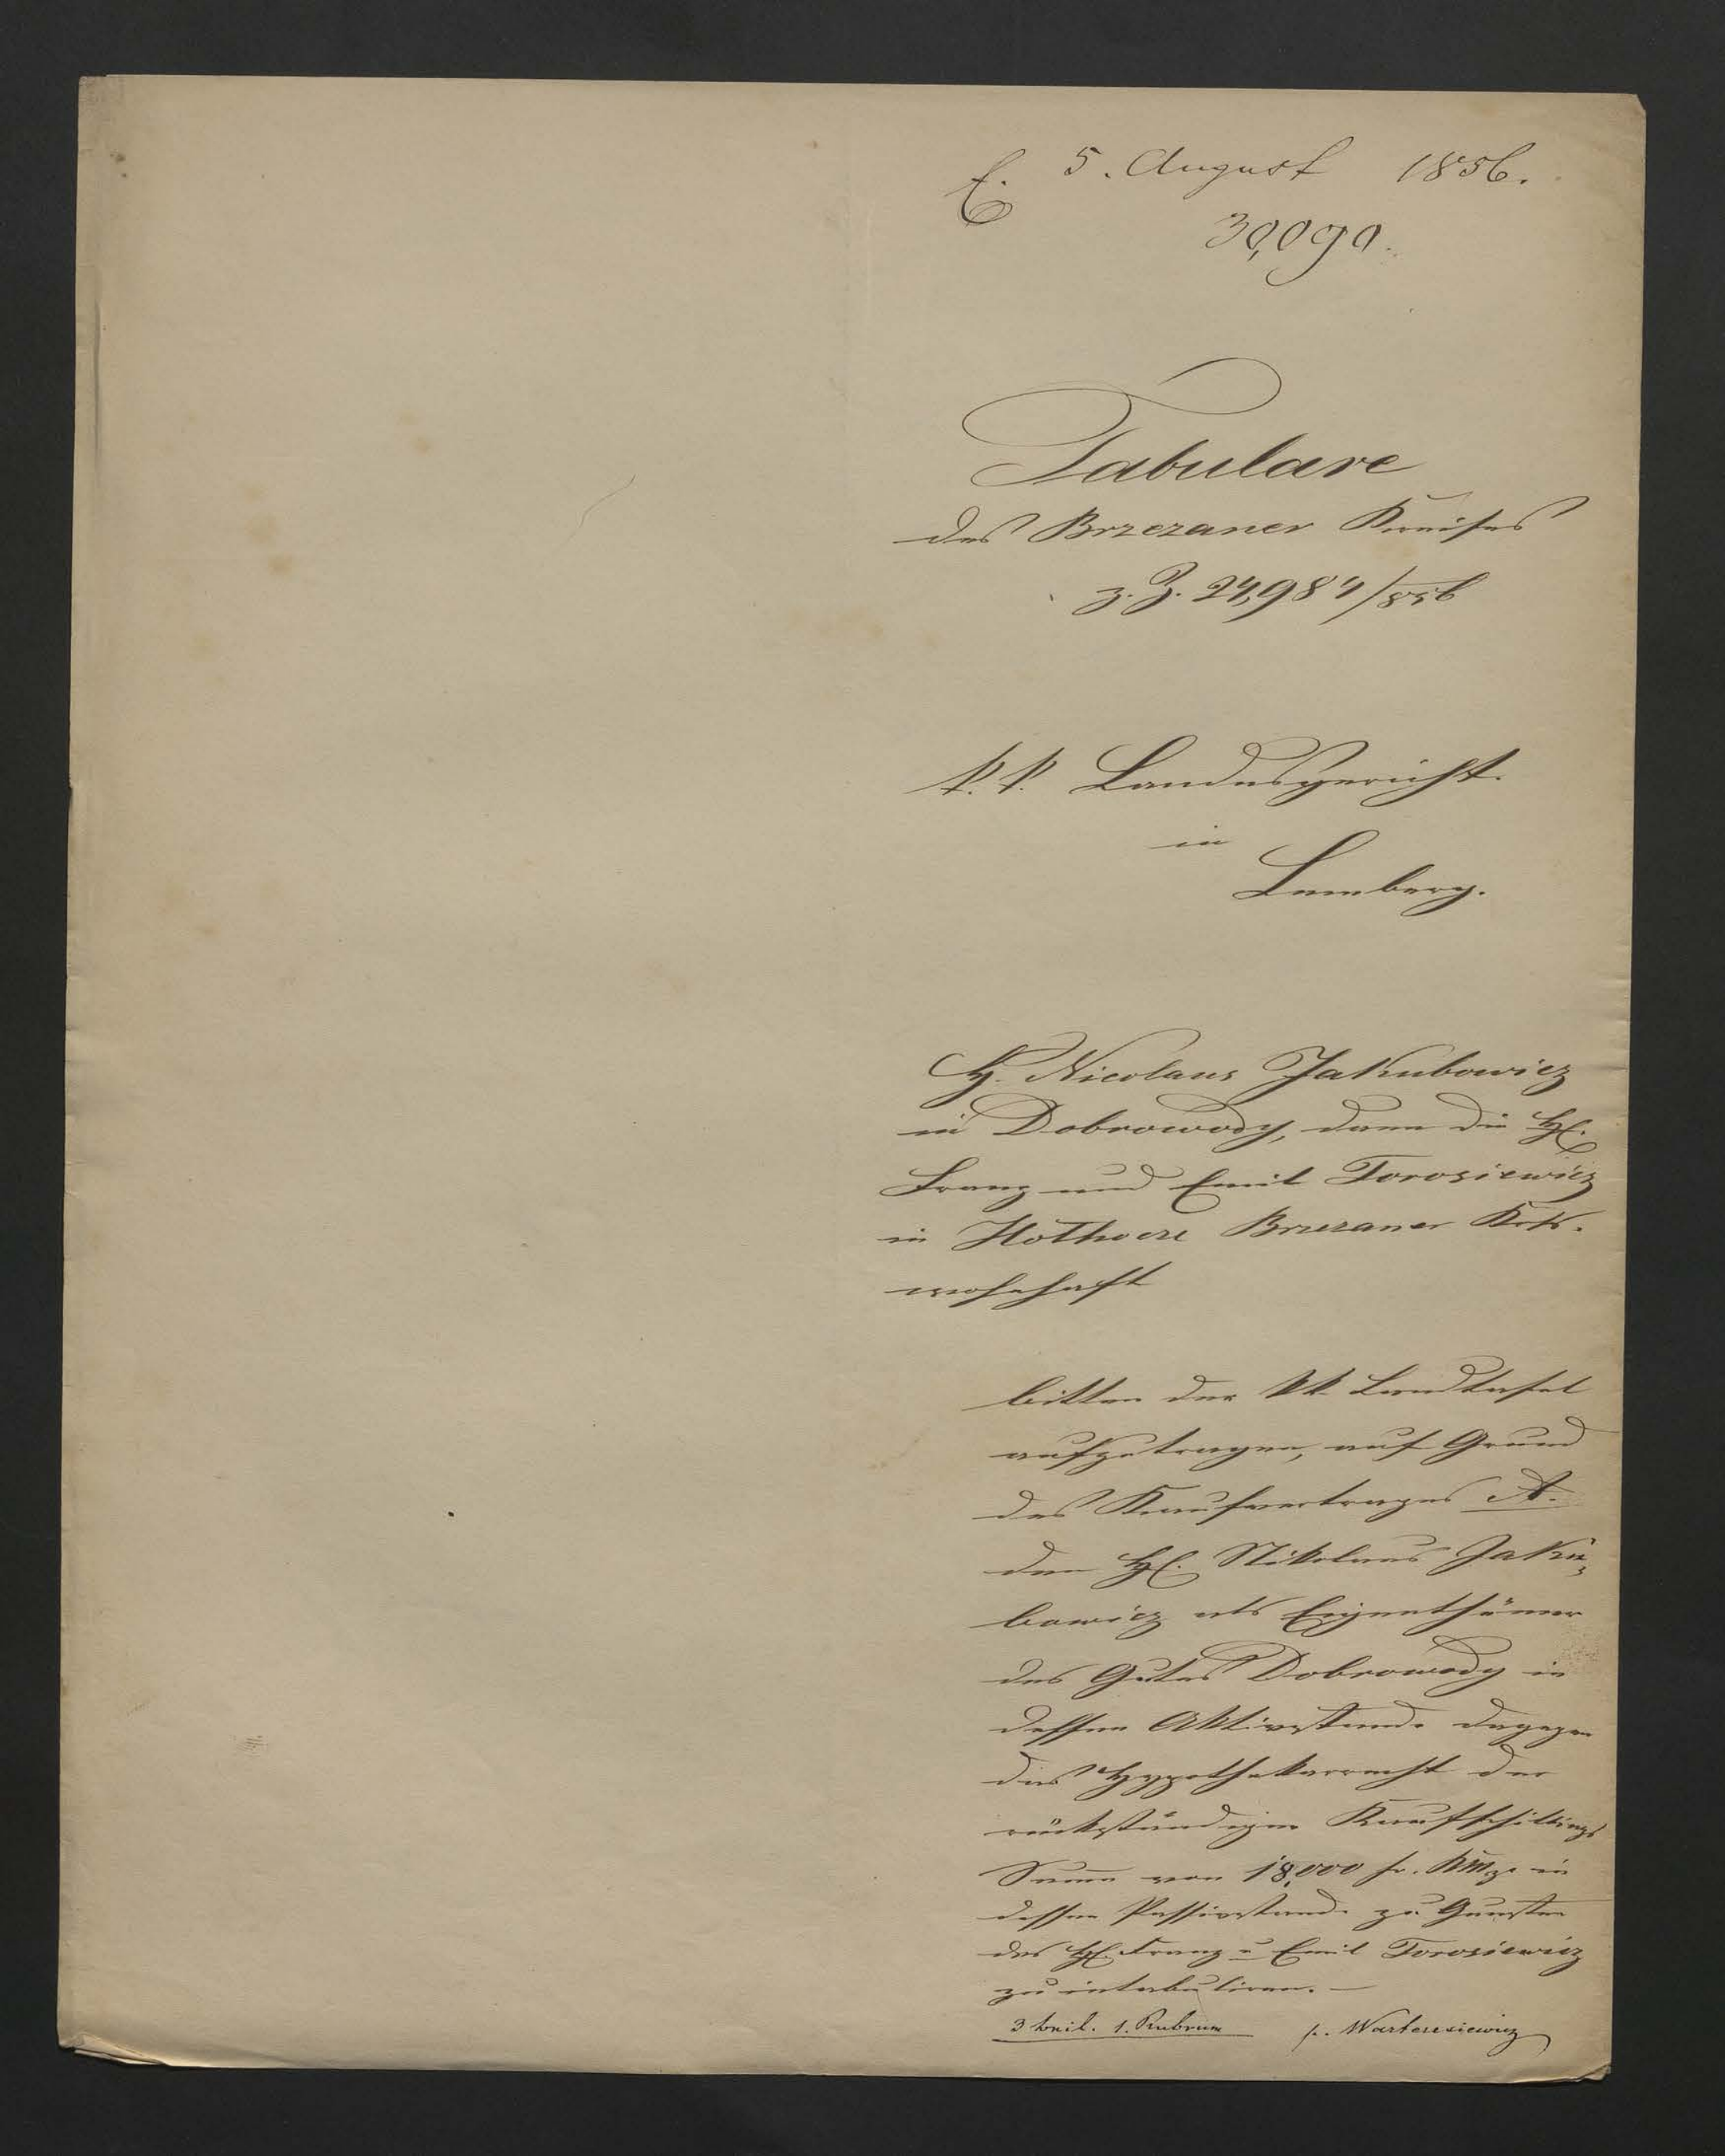 E. 5. August 1856.
30,090.
Tabulare
des Brzezaner Kreises
z. Z. 24,984/856
k. k. Landesgericht.
in
Lemberg.
H. Nicolaus Jakubowicz
in Dobrowody, dann die HH.
Franz und Emil Torosiewicz
in Hothocze Brzezaner Krs.
wohnhaft
bitten der kk. Landtafel
aufzutragen, auf Grund
des Kaufvertrages A.
den H. Nikolaus Jaku-
bowicz als Eigenthümer
des Gutes Dobrowody in
dessen Aktivstande dagegen
das Hypothekarrecht der
rückständigen Kaufschillings
Summe von 18,000 fr. KMze in
dessen Passivstande zu Gunsten
des H. Franz u Emil Torosiewicz
zu intabuliren. —
3 beil. 1. Rubrum
p. Warteresiewicz